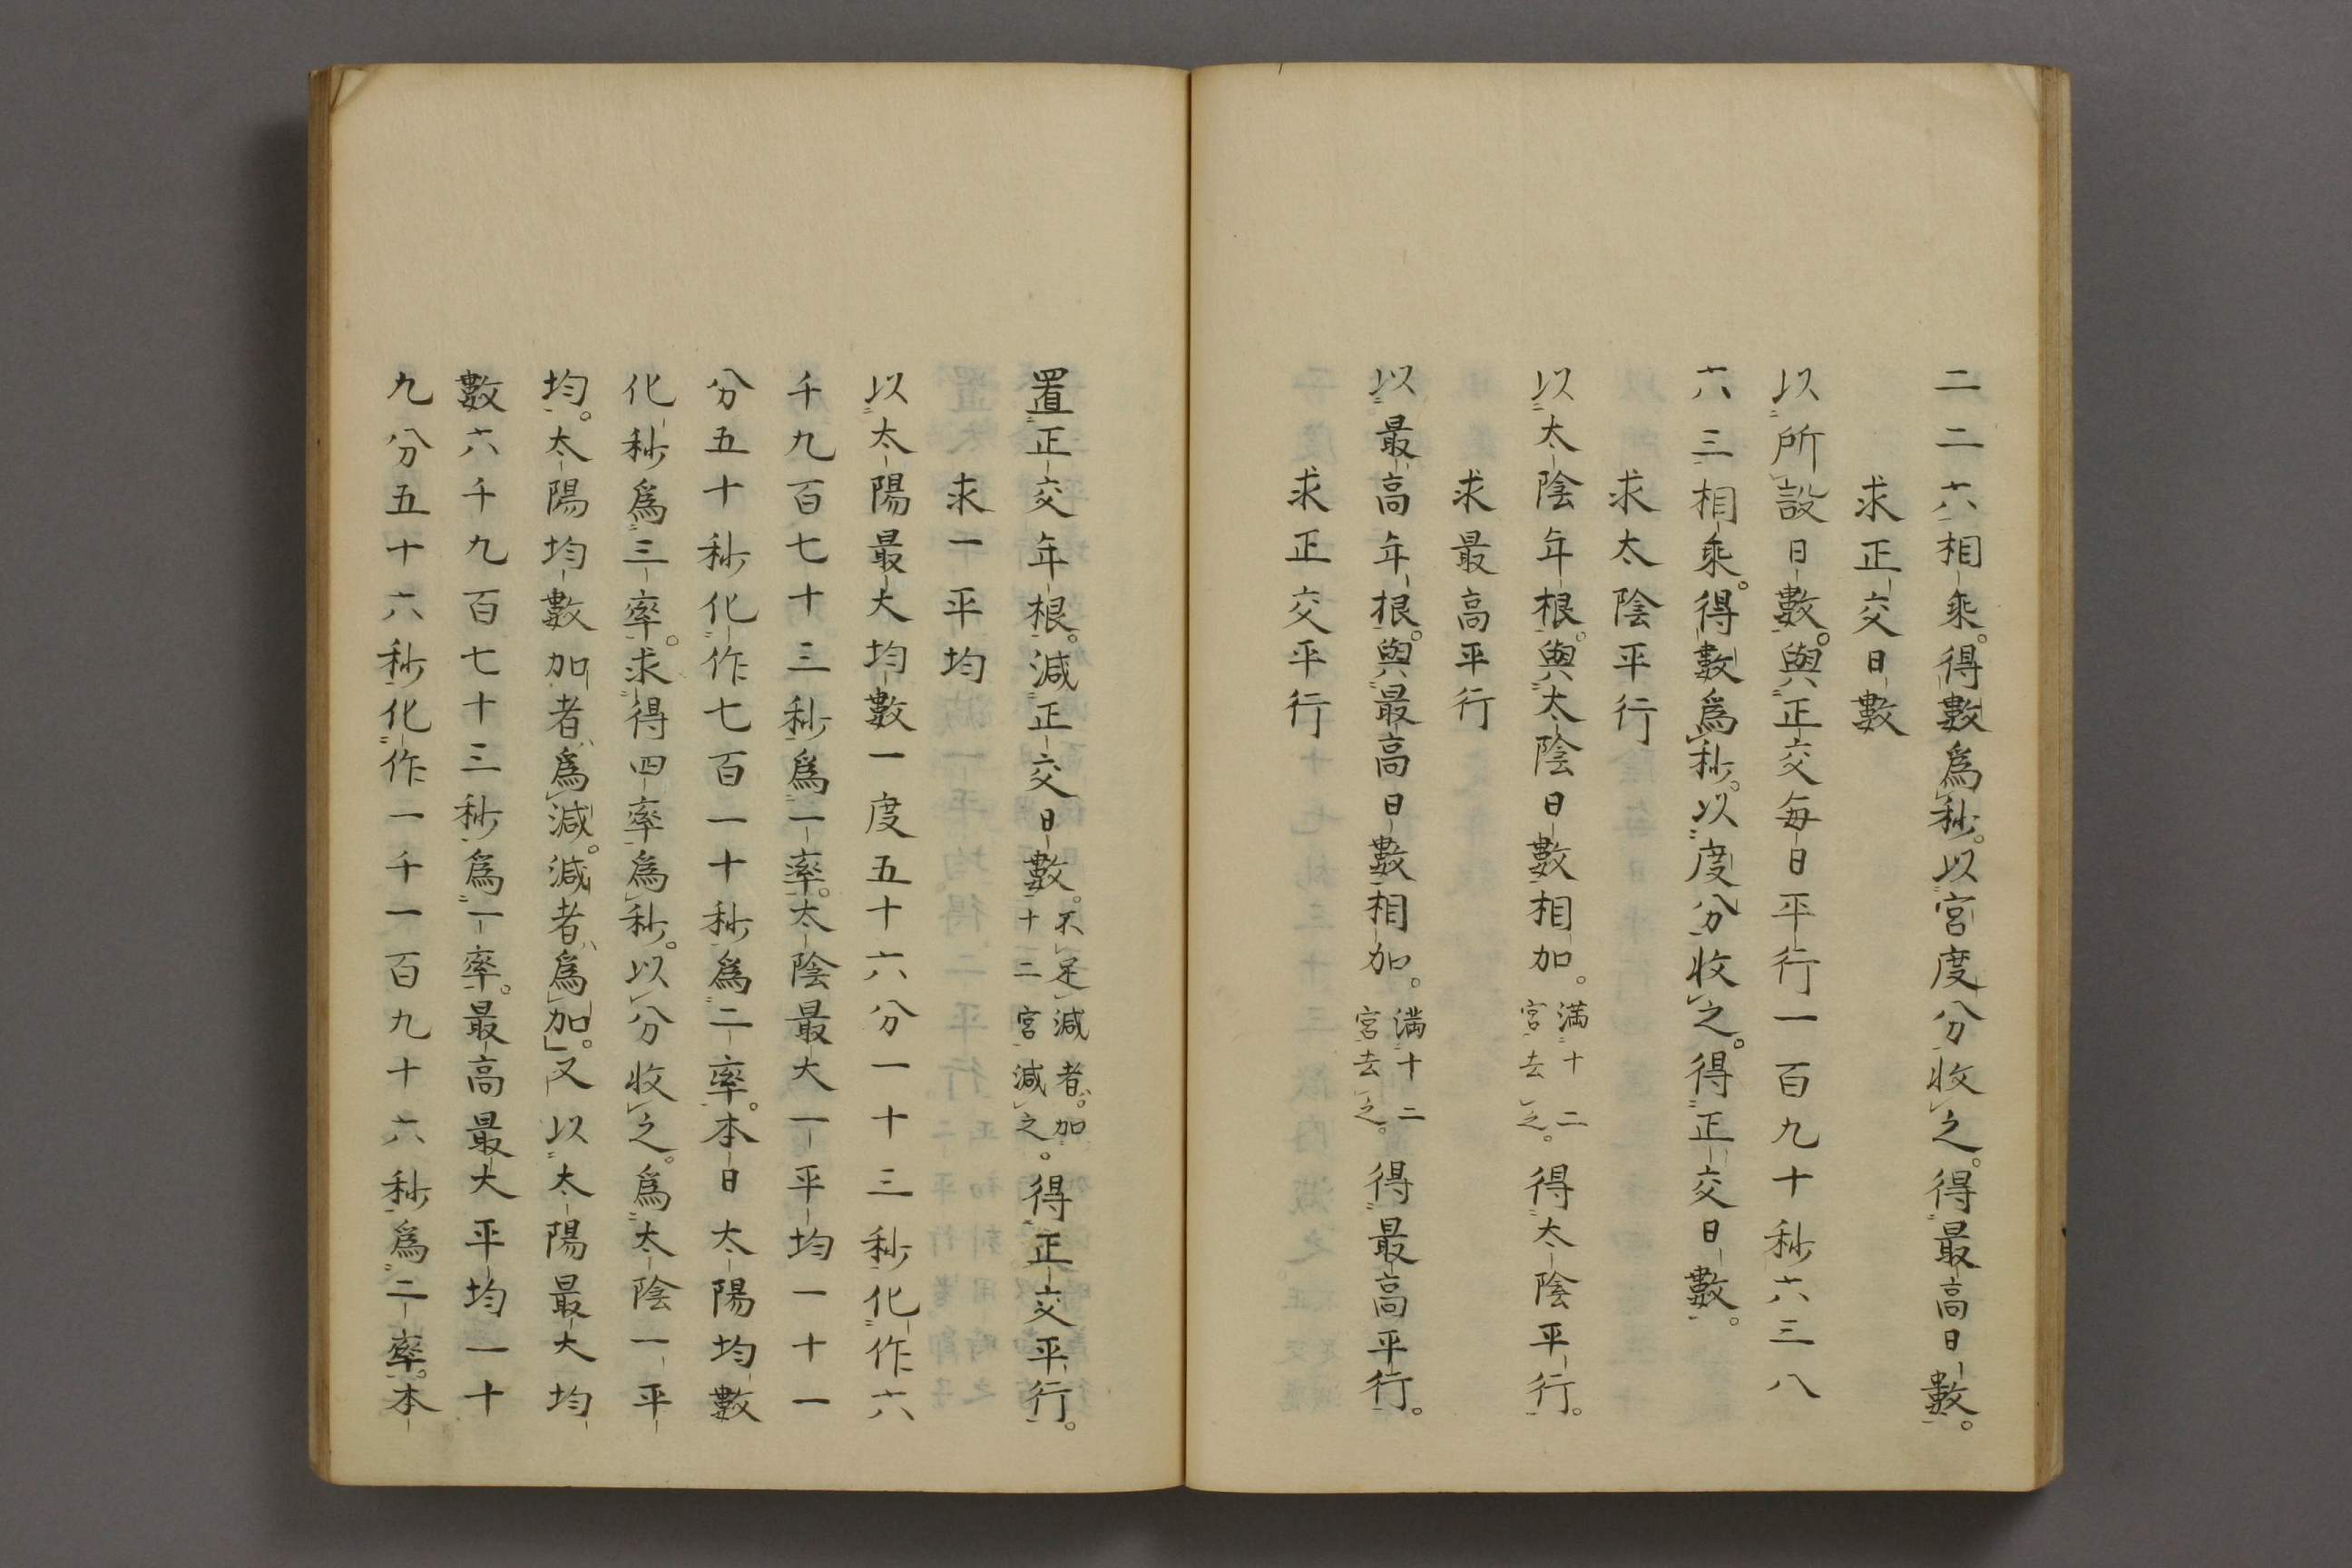 二二六相乘。得數爲秒。以宮度分收之。得最高日數。
求正交日數
以所設日數。與正交每日平行一百九十秒六三八
六三相乘。得數爲秒。以度分收之。得正交日數。
求太陰平行
以太陰年根。與太陰日數相加。滿十二宮去之。得太陰平行。
求最高平行
以最高年根。與最高日數相加。滿十二宮去之。得最高平行。
求正交平行
置正交年根。減正交日數。不足減者。加十二宮減之。得正交平行。
求一平均
以太陽最大均數一度五十六分一十三秒化作六
千九百七十三秒爲一率。太陰最大一平均一十一
分五十秒化作七百一十秒爲二率。本日太陽均數
化秒爲三率。求得四率爲秒。以分收之。爲太陰一平
均。太陽均數加者爲減。減者爲加。又以太陽最大均
數六千九百七十三秒爲一率。最高最大平均一十
九分五十六秒化作一千一百九十六秒爲二率。本